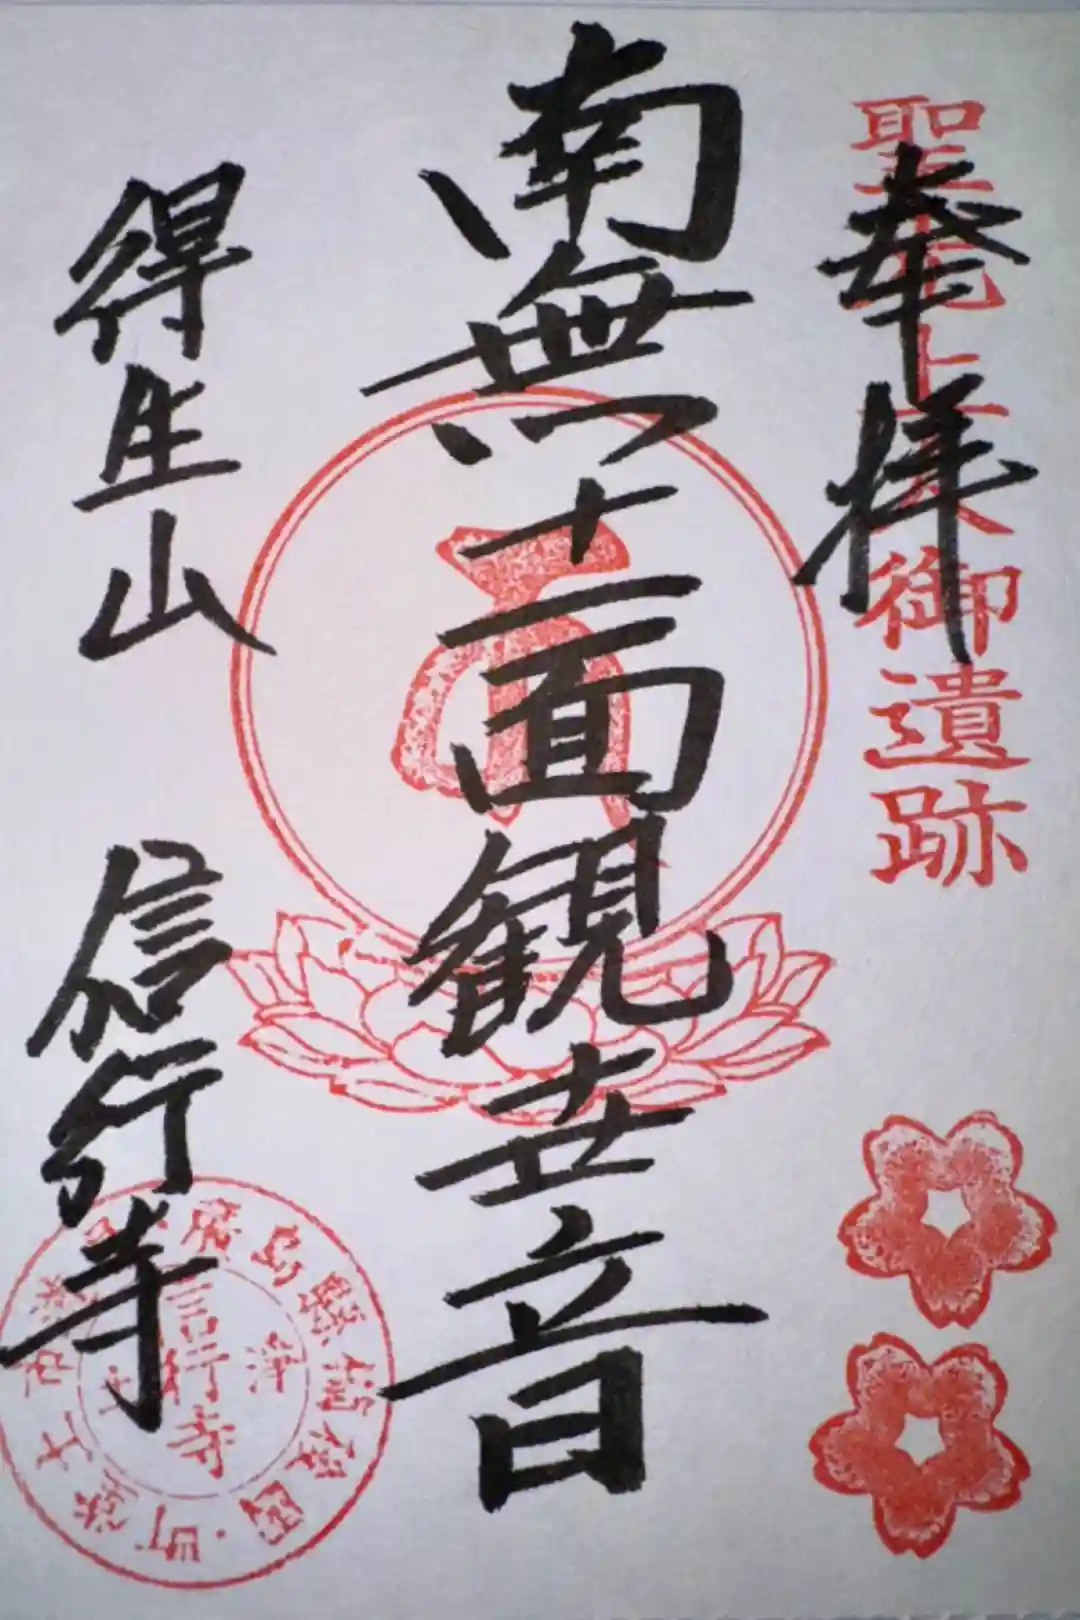 聖光上人御遺跡
奉拝
南無十一面観世音
得生山 信行寺
信行寺